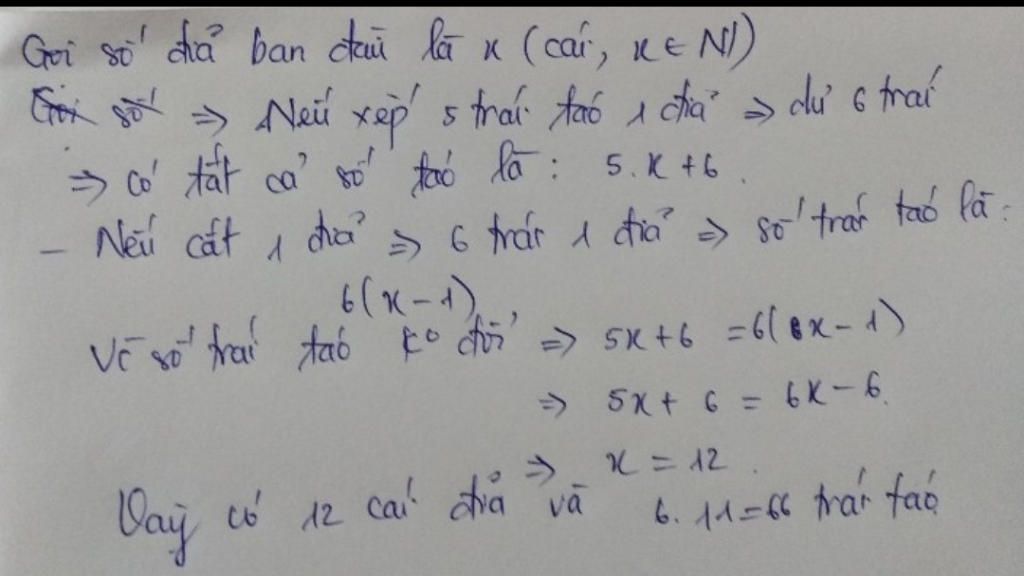 Gọi số đĩa ban đầu là x (cái, x ∈ N)
Gọi số ⇒ Nếu xếp 5 trái táo 1 đĩa ⇒ dư 6 trái
⇒ có tất cả số táo là: 5.x + 6.
- Nếu cất 1 đĩa ⇒ 6 trái 1 đĩa ⇒ số trái táo là:
6(x - 1)
Vì số trái táo ko đổi ⇒ 5x + 6 = 6(x - 1)
⇒ 5x + 6 = 6x - 6.
⇒ x = 12.
Vậy có 12 cái đĩa và 6.11 = 66 trái táo